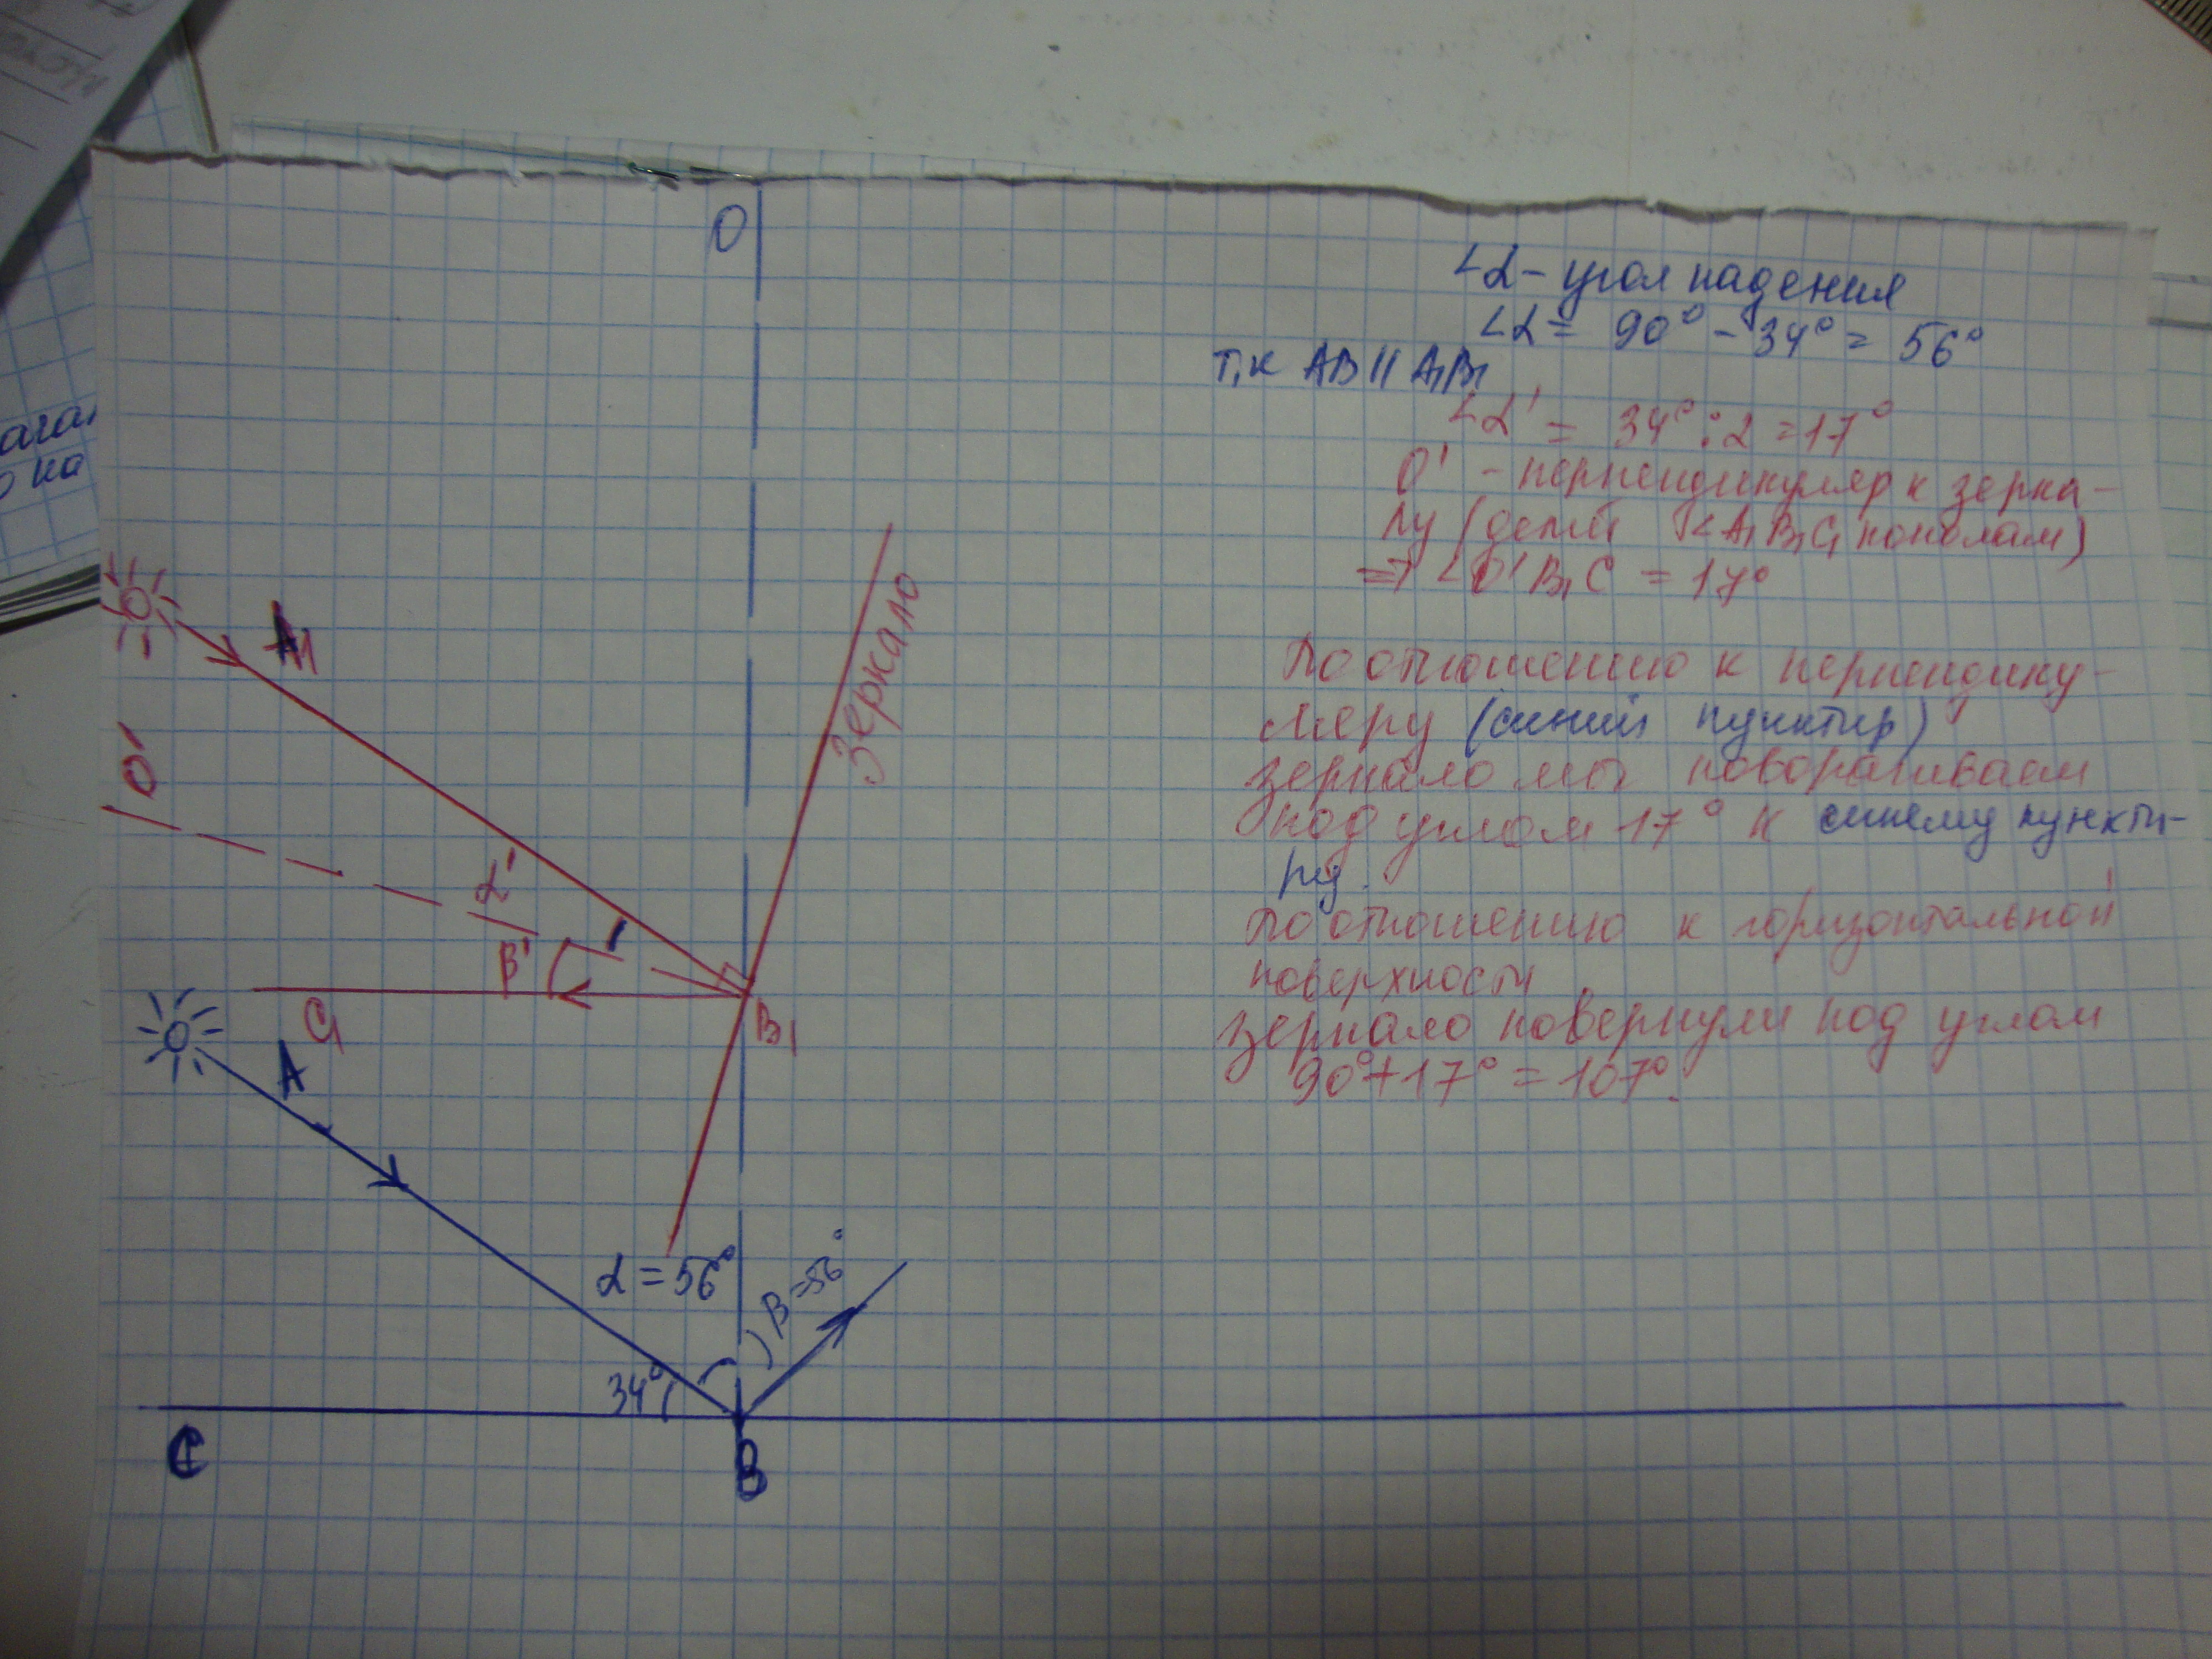 О
∠α – угол падения
∠α = 90° – 34° = 56°
т.к АВ || А₁В₁
∠α' = 34° : 2 = 17°
О' – перпендикуляр к зерка-
лу (делит ∠А₁В₁С₁ пополам)
⇒ ∠О'В₁С = 17°
По отношению к перпендику-
ляру (синий пунктир)
зеркало мы поворачиваем
под углом 17° к синему пункти-
ру.
По отношению к горизонтальной
поверхности
зеркало повернули под углом
90° + 17° = 107°.
Зеркало
А₁
О'
α'
β'
С₁
В₁
А
α = 56°
β = 56°
34°
С
В
ага
о на